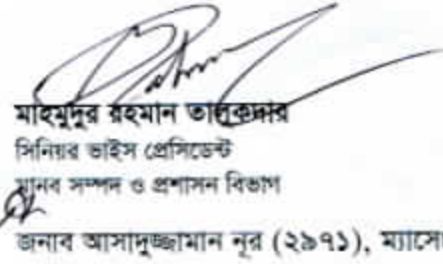 মাহমুদুর রহমান তালুকদার
সিনিয়র ভাইস প্রেসিডেন্ট
মানব সম্পদ ও প্রশাসন বিভাগ
জনাব আসাদুজ্জামান নূর (২৯৭১),